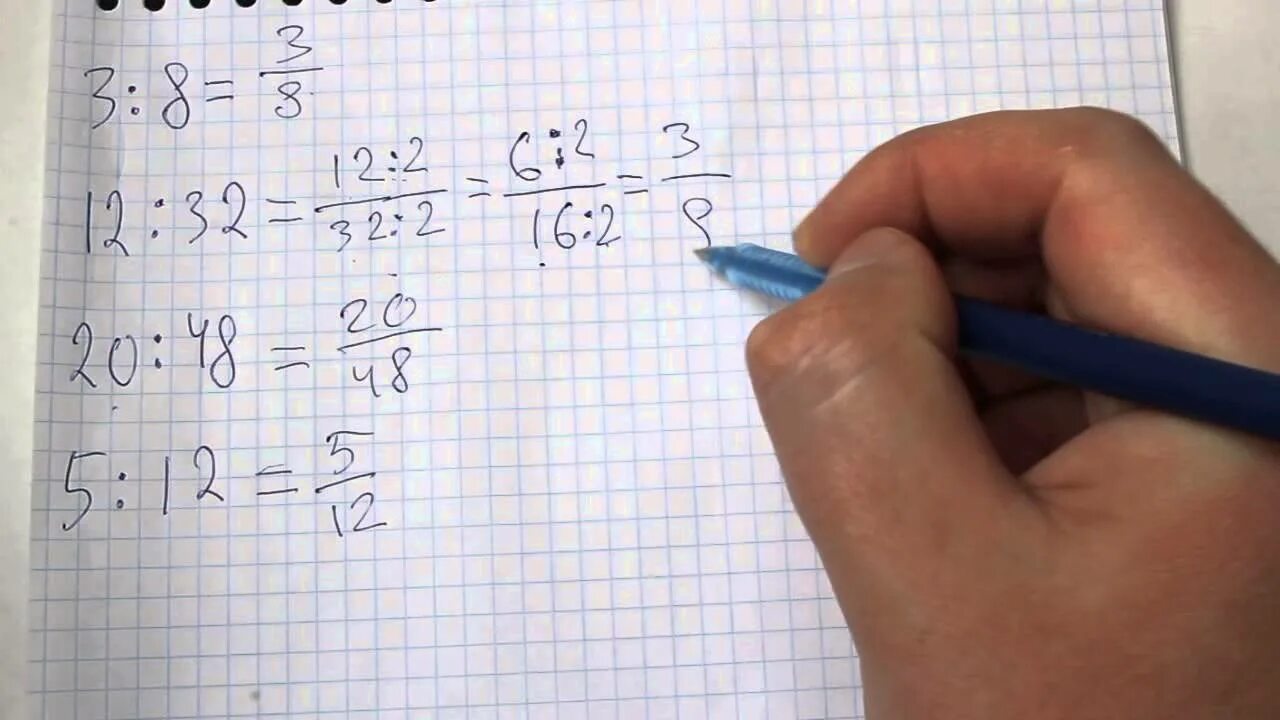 3:8 = 3/8
12:32 = 12:2/32:2 = 6:2/16:2 = 3/8
20:48 = 20/48
5:12 = 5/12